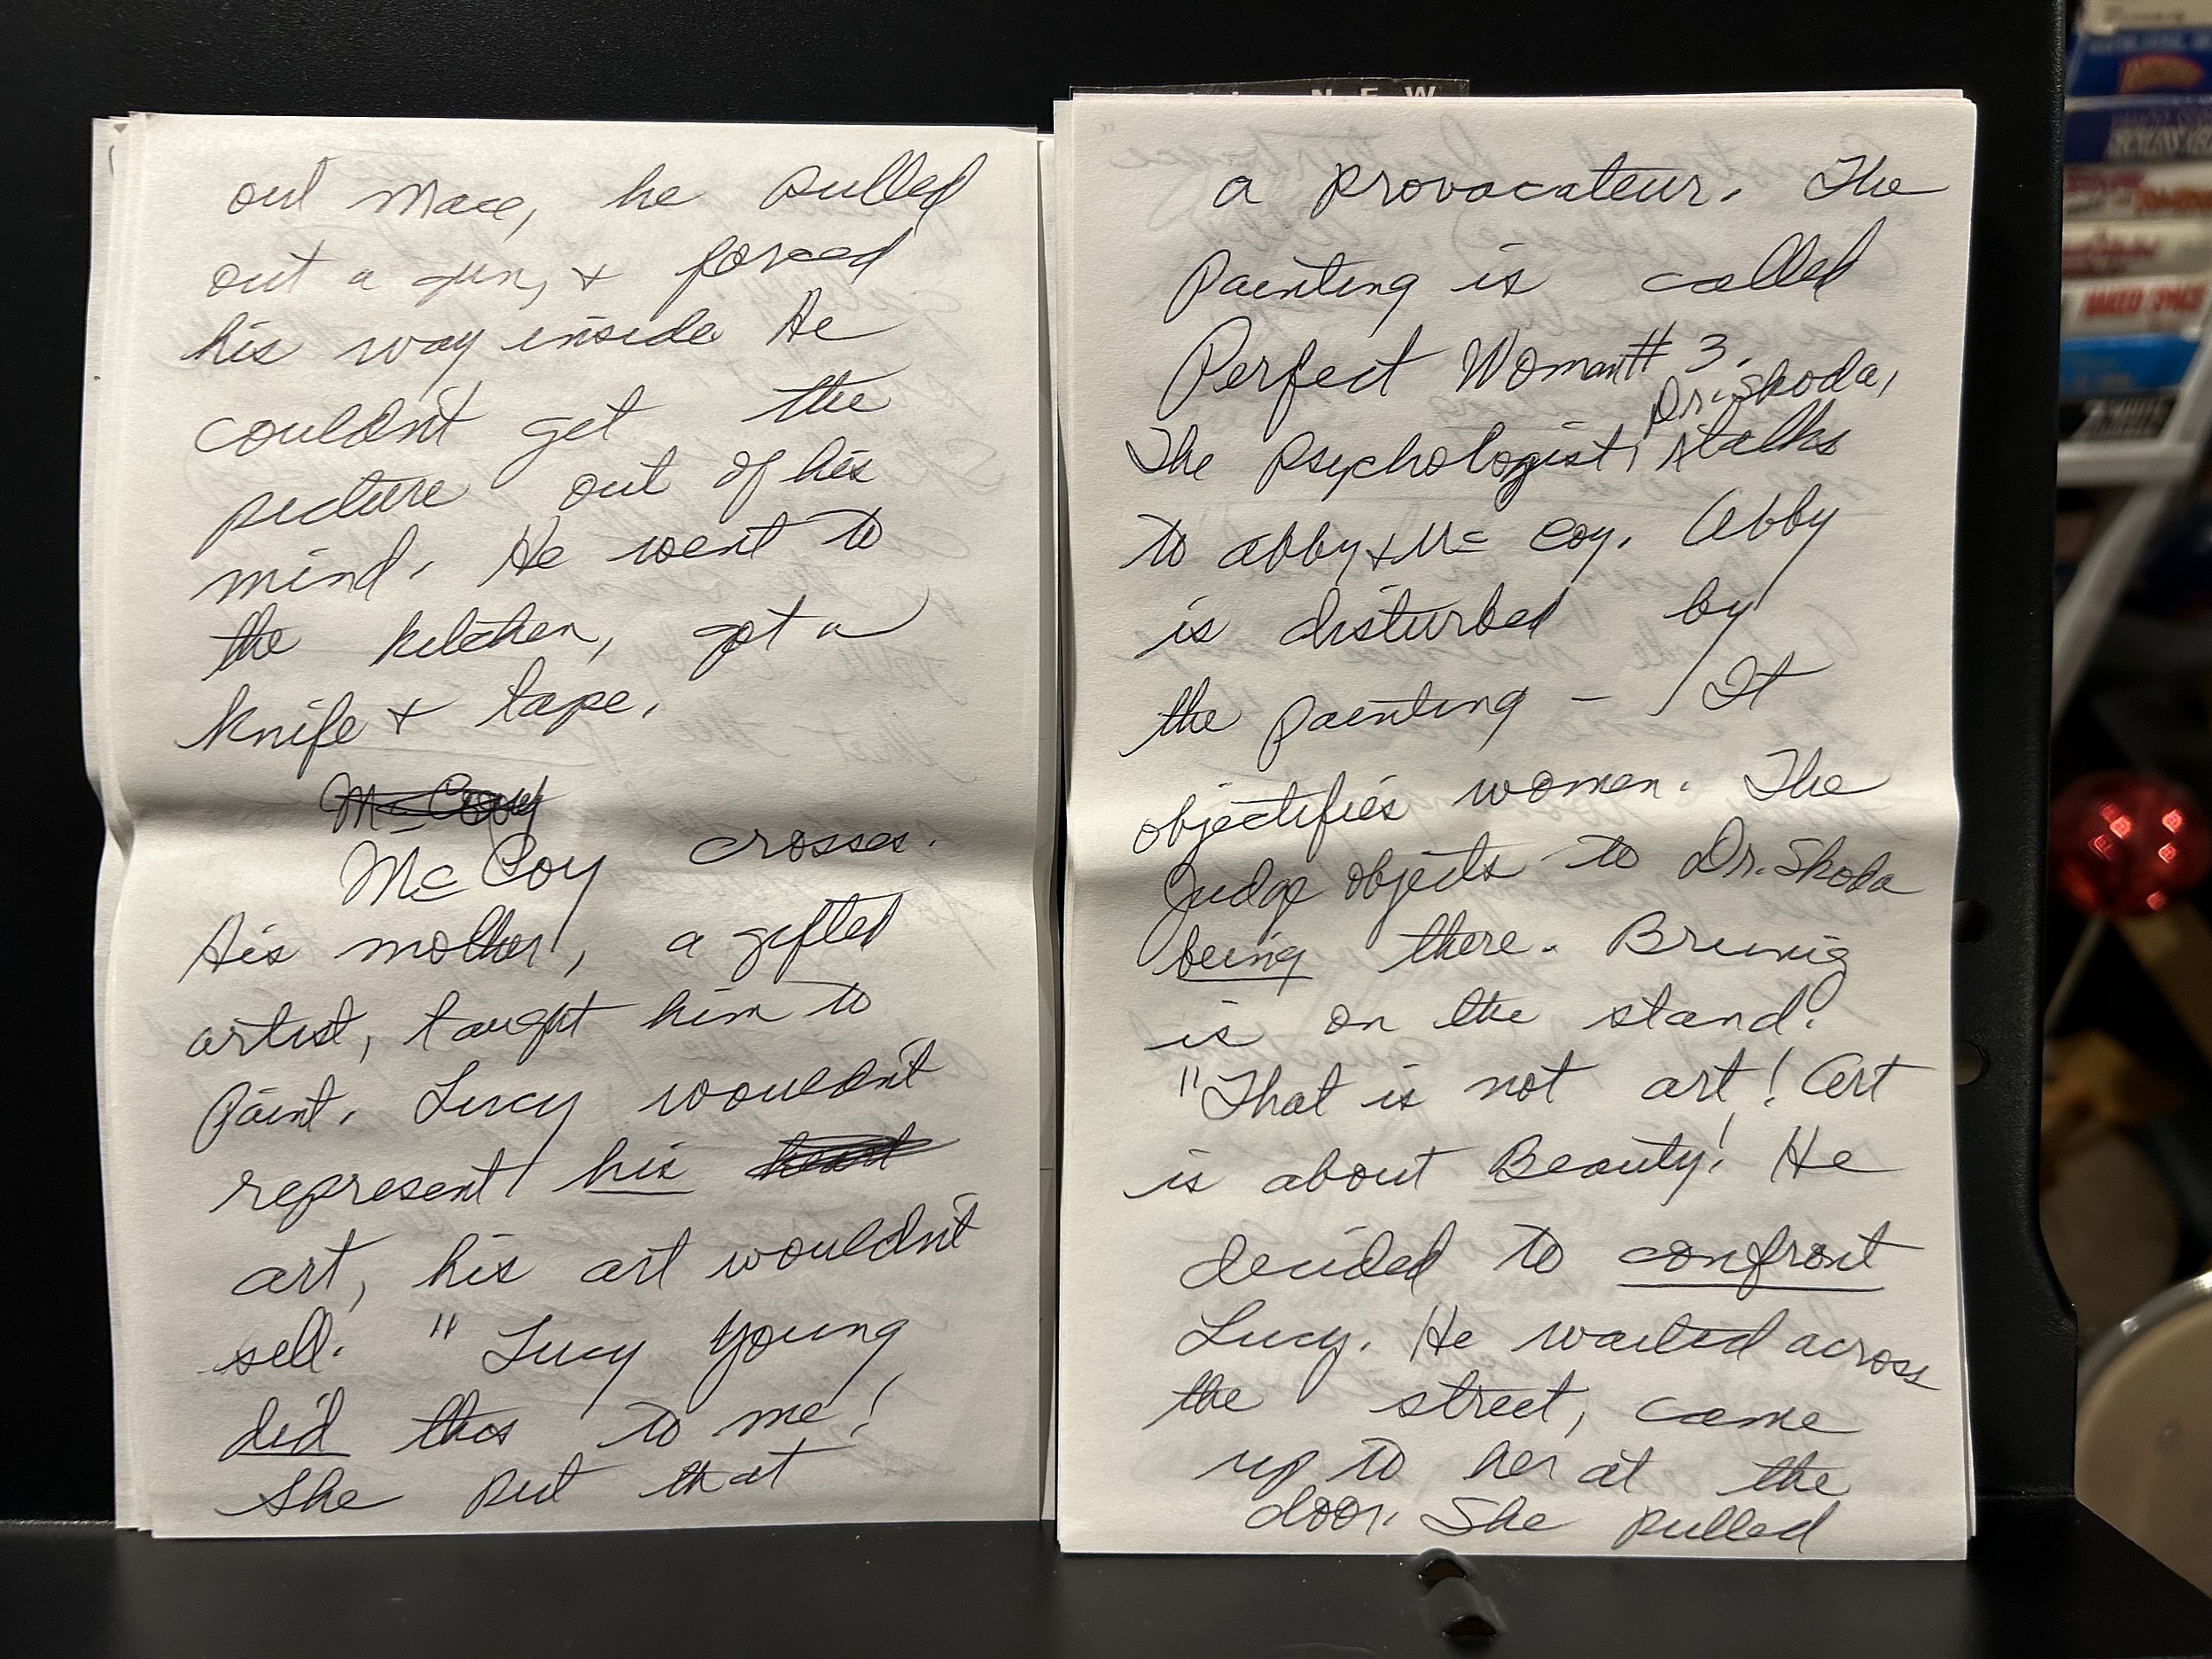 out Mace, he pulled
out a gun, + forced
his way inside He
couldn't get the
picture out of his
mind. He went to
the kitchen, got a
knife + tape.
McCoy
McCoy crosses.
His mother, a gifted
artist, taught him to
paint. Lucy wouldn't
represent his heart
art, his art wouldn't
sell. "Lucy Young
did this to me!
She put that
N E W
a provacateur. The
Painting is called
Perfect Woman # 3.
Dr. Skoda,
The Psychologist, talks
to Abby + McCoy. Abby
is disturbed by
the painting – It
objectifies women. The
Judge objects to Dr. Skoda
being there. Brunig
is on the stand:
"That is not art! Art
is about Beauty! He
decided to confront
Lucy. He waited across
the street, came
up to her at the
door. She pulled